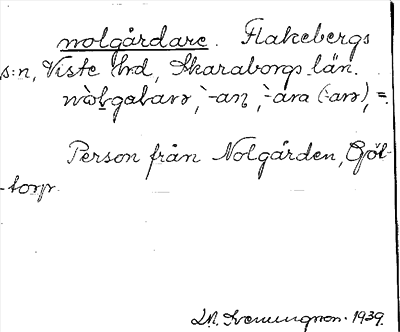 nolgårdare. Flakebergs
s:n, Viste hrd, Skaraborgs län.
nòlgabarə, `-an, `-ara (`-arə), =.
Person från Nolgården, Göl-
-torp.
1939.